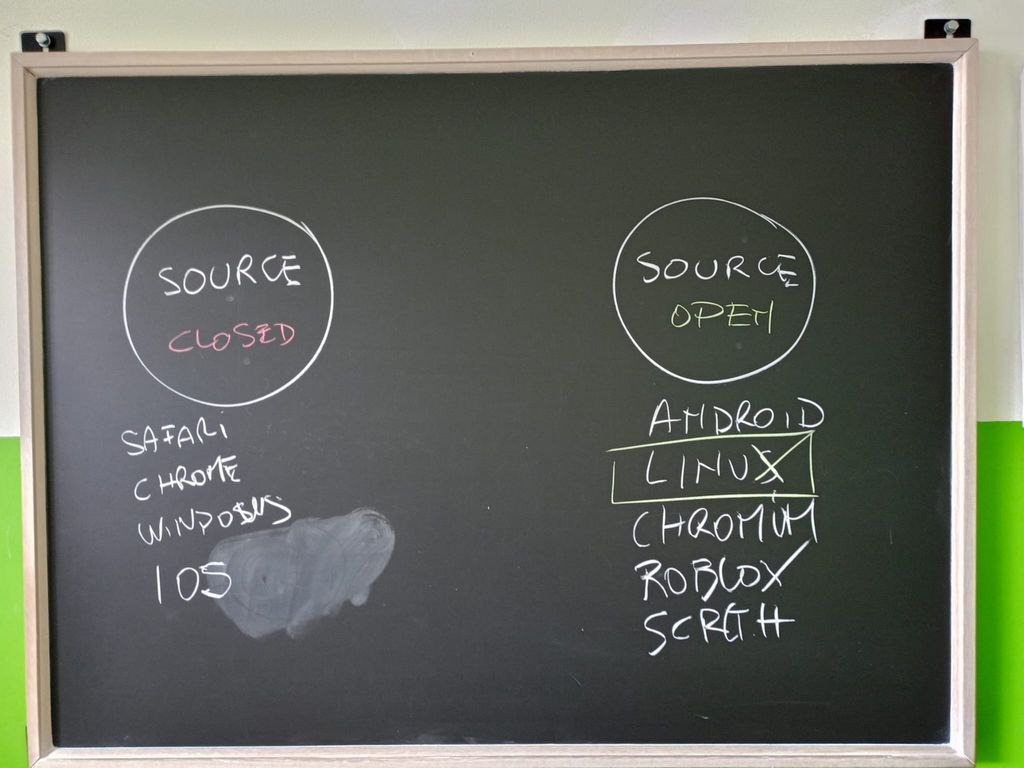 SOURCE
CLOSED
SAFARI
CHROME
WINDOWS
IOS
SOURCE
OPEN
ANDROID
LINUX
CHROMIUM
ROBLOX